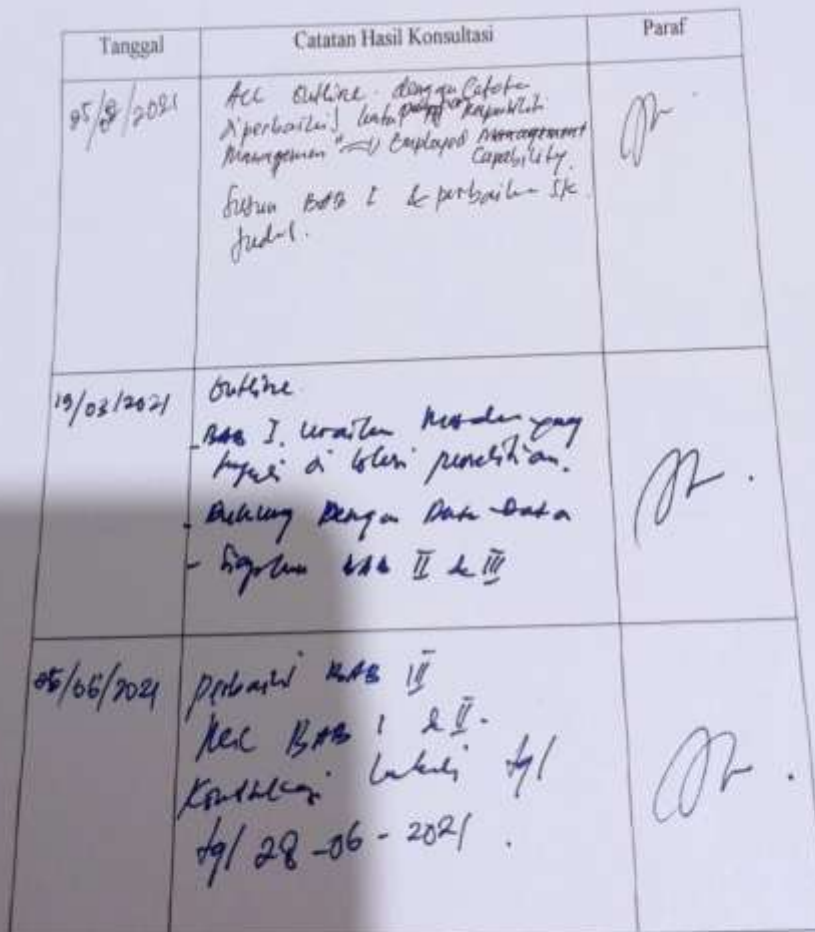 Tanggal Catatan Hasil Konsultasi Paraf
/2021 Acc Outline dengan Catatan
diperbaiki kata
Managemen Employed Management
Capability.
Susun BAB I & perbaikan SK
Judul.
19/03/2021 Outline
- BAB I. uraikan yang
di penelitian.
- Dukung Dengan Data-Data
- BAB II & III
/06/2021 perbaiki BAB III
Acc BAB I & II.
Konsultasi tgl
tgl 28-06-2021.